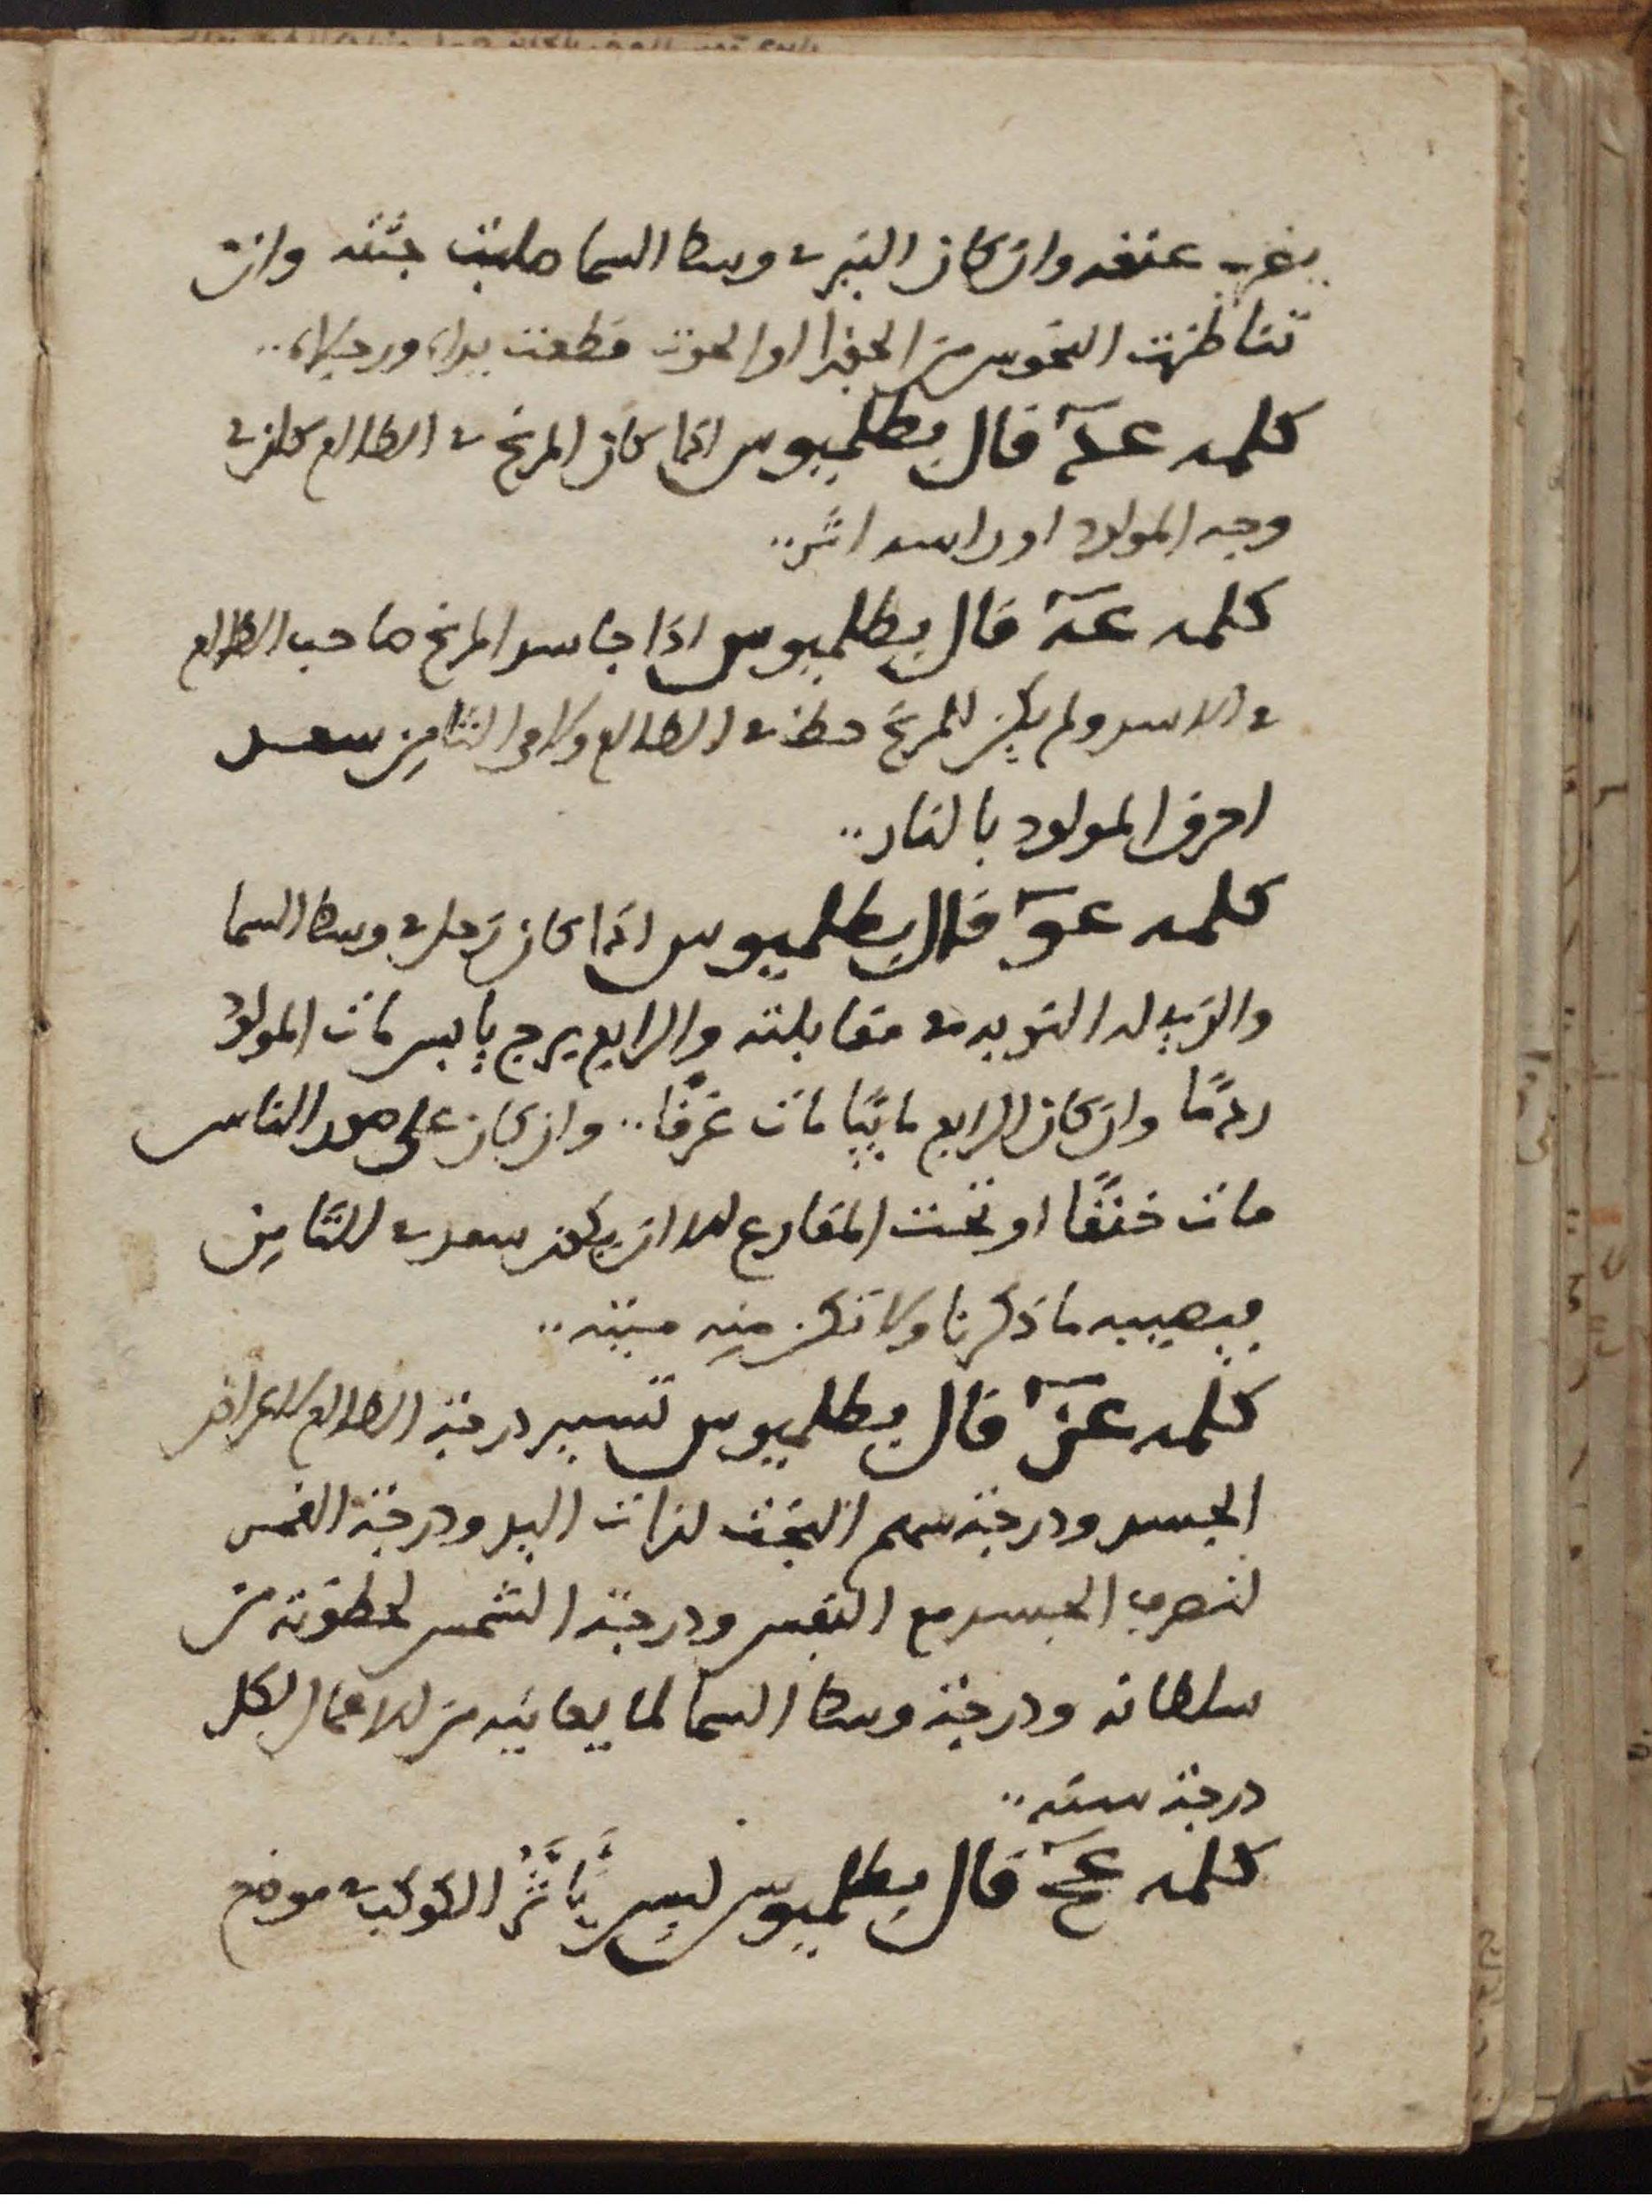 بضرب عنقه وان كان النير في وسط السما صلبت جثته وان
تناظرت النحوس من الجوزا او الحوت قطعت يداه ورجلاه..
كلمه عد قال بطلميوس اذا كان المريخ في الطالع كان في
وجه المولود او راسه اثر..
كلمه عه قال بطلميوس اذا جاسد المريخ صاحب الطالع
في الاسد ولم يكن للمريخ حظ في الطالع ولا في الثامن سعد
احرق المولود بالنار..
كلمه عو قال بطلميوس اذا كان زحل في وسط السما
والذي له النوبه في مقابلته والرابع برج يابس مات المولود
ردمًا وان كان الرابع مائيًا مات غرقًا.. وان كان على صور الناس
مات خنقًا او تحت المقارع الا ان يكون سعد في الثامن
فيصيبه ما ذكرنا ولا تكن منه ميتته..
كلمه عز قال بطلميوس تسيير درجة الطالع لاعراض
الجسد ودرجة سهم البخت لذات اليد ودرجة القمر
لتصرف الجسد مع النفس ودرجة الشمس لحظوته من
سلطانه ودرجة وسط السما لما يعانيه من الاعمال لكل
درجة سنه..
كلمه عح قال بطلميوس ليس تأثر الكوكب في موضع